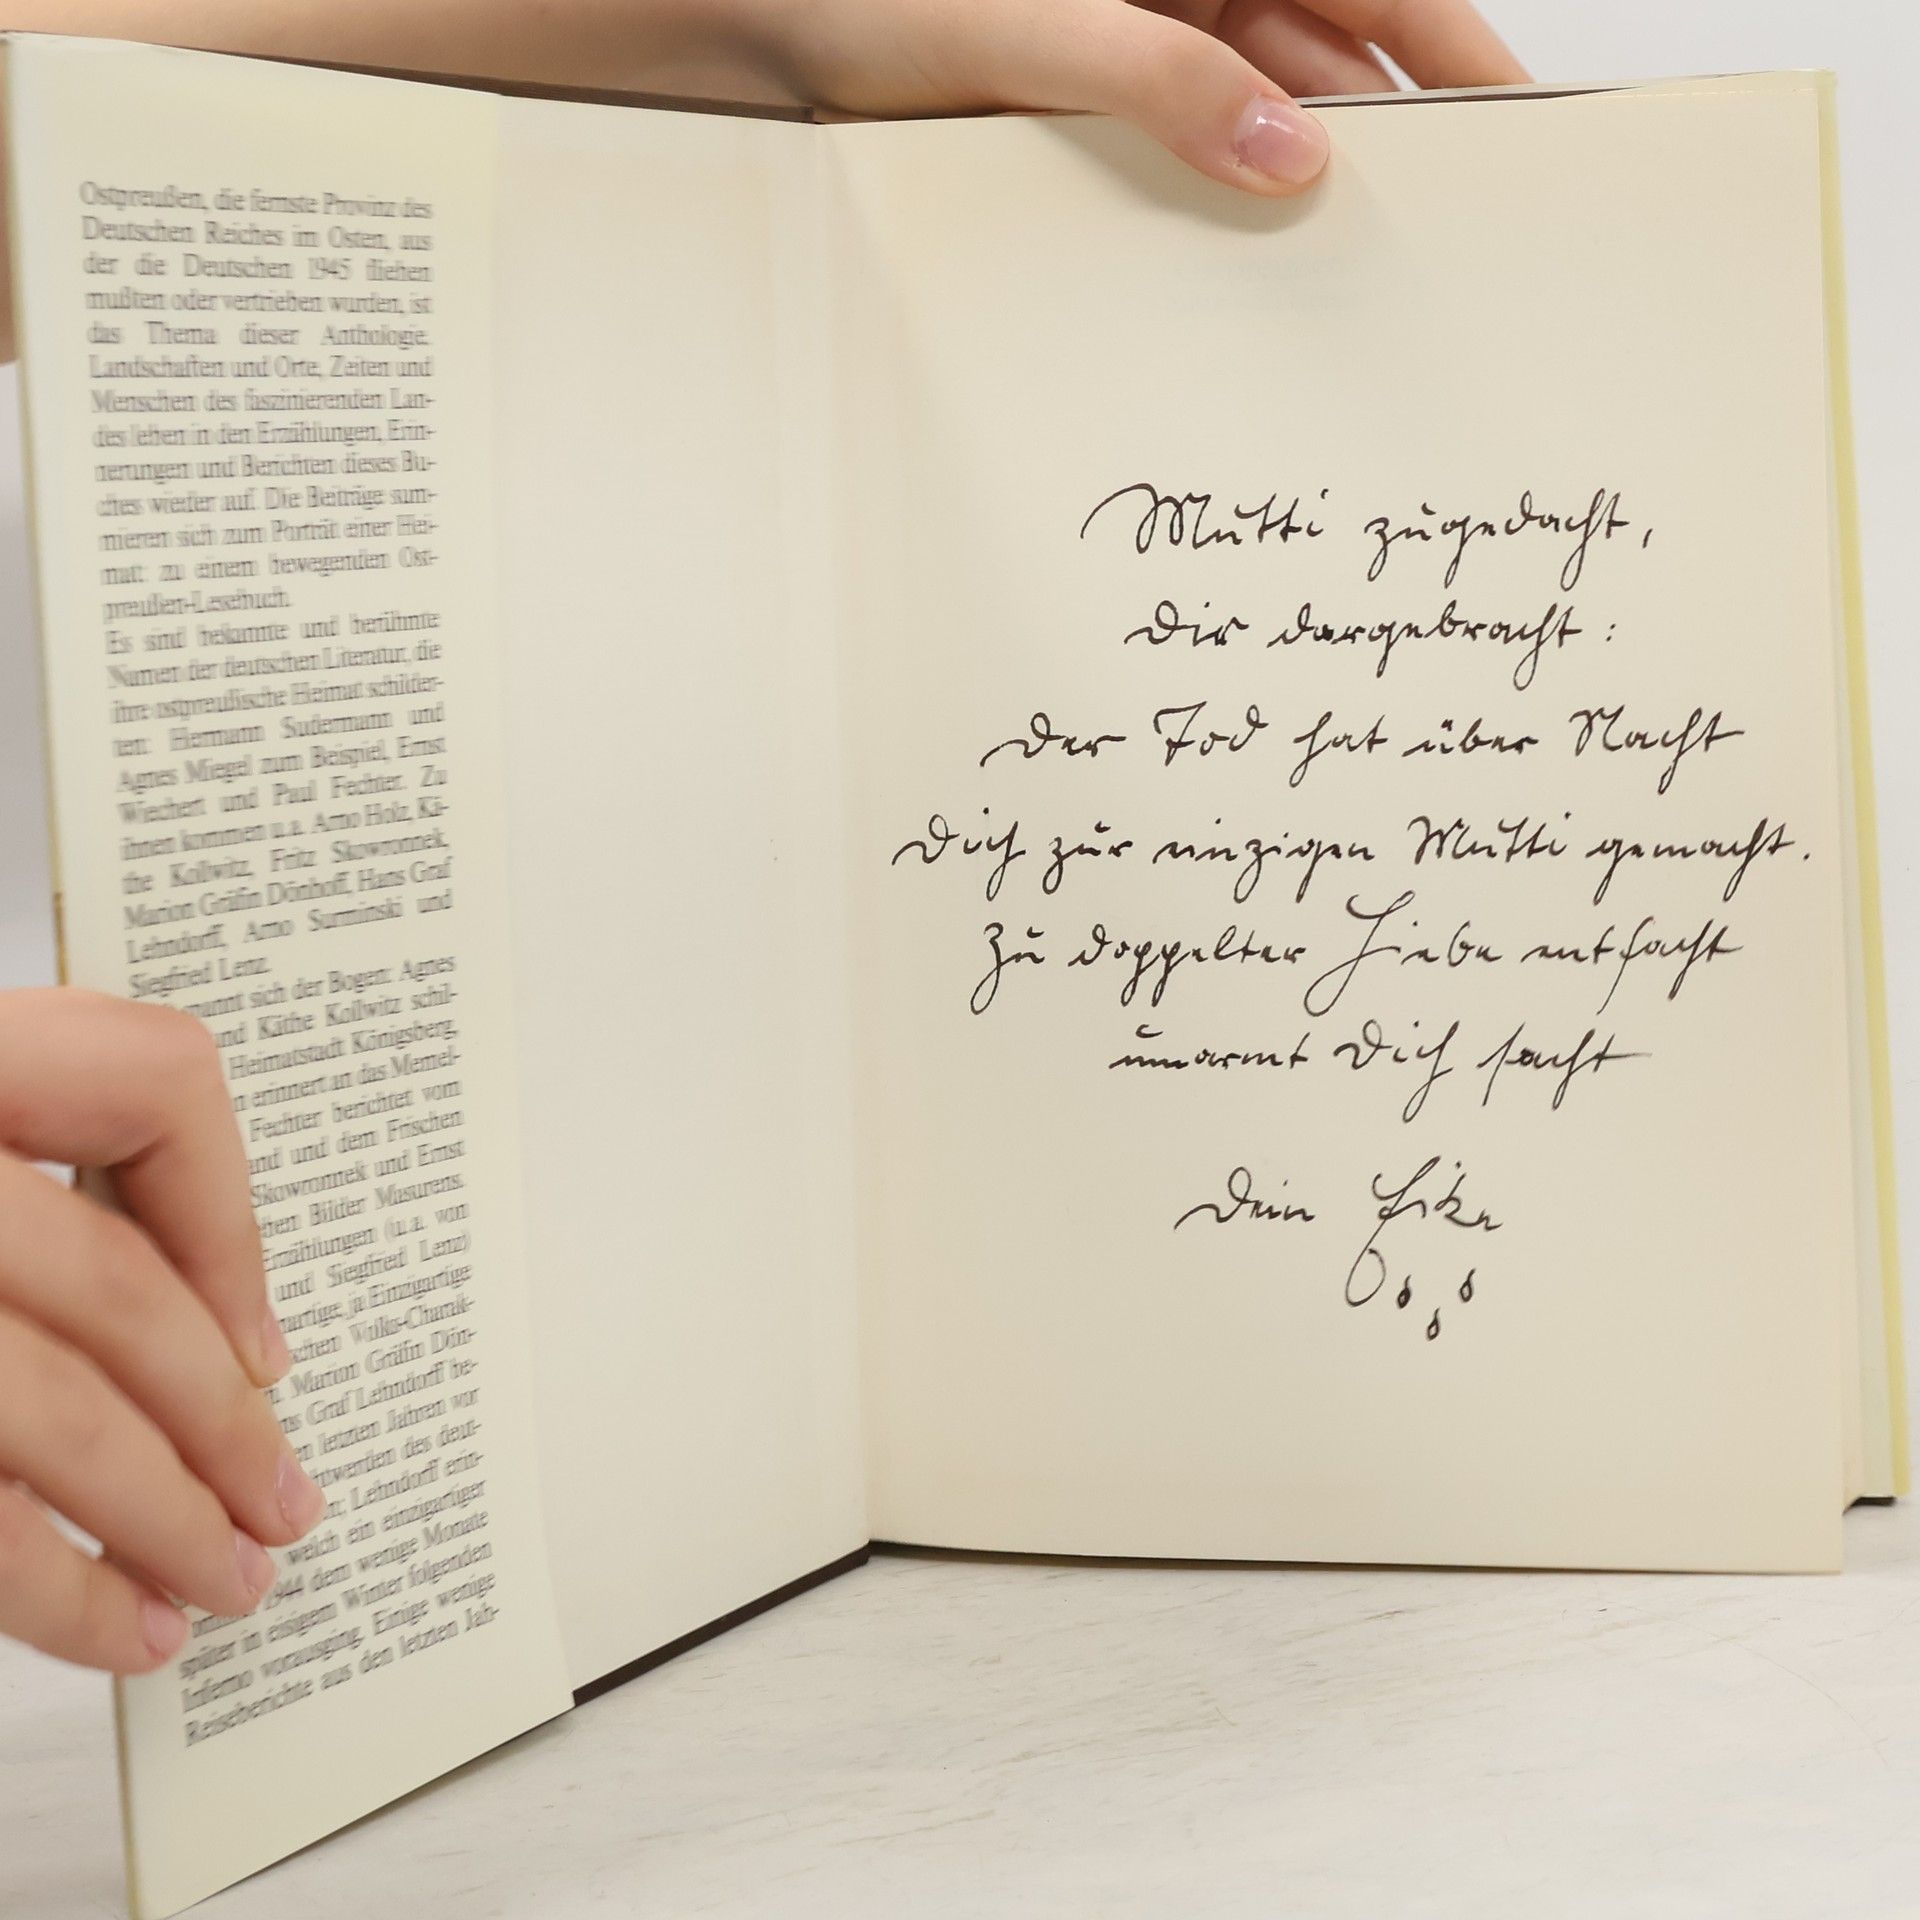 Ostpreußen, die fernste Provinz des
Deutschen Reiches im Osten, aus
der die Deutschen 1945 fliehen
mußten oder vertrieben wurden, ist
das Thema dieser Anthologie.
Landschaften und Orte, Zeiten und
Menschen des faszinierenden Lan-
des leben in den Erzählungen, Erin-
nerungen und Berichten dieses Bu-
ches wieder auf. Die Beiträge sum-
mieren sich zum Porträt einer Hei-
mat: zu einem bewegenden Ost-
preußen-Lesebuch.
Es sind bekannte und berühmte
Namen der deutschen Literatur, die
ihre ostpreußische Heimat schilder-
ten: Hermann Sudermann und
Agnes Miegel zum Beispiel, Ernst
Wiechert und Paul Fechter. Zu
ihnen kommen u. a. Arno Holz, Kä-
the Kollwitz, Fritz Skowronnek,
Marion Gräfin Dönhoff, Hans Graf
Lehndorff, Arno Surminski und
Siegfried Lenz.
spannt sich der Bogen: Agnes
und Käthe Kollwitz schil-
Heimatstadt Königsberg,
erinnert an das Memel-
Fechter berichtet vom
und dem Frischen
Skowronnek und Ernst
Bilder Masurens.
Erzählungen (u. a. von
und Siegfried Lenz)
artige, ja Einzigartige
schen Volks-Charak-
Marion Gräfin Dön-
Graf Lehndorff be-
letzten Jahren vor
des deut-
Lehndorff erin-
welch ein einzigartiger
1944 dem wenige Monate
später in eisigem Winter folgenden
Inferno vorausging. Einige wenige
Reiseberichte aus den letzten Jah-
Mutti zugedacht,
Dir dargebracht:
Der Tod hat über Nacht
Dich zur einzigen Mutti gemacht.
Zu doppelter Liebe entfacht
umarmt Dich sacht
Dein Eike